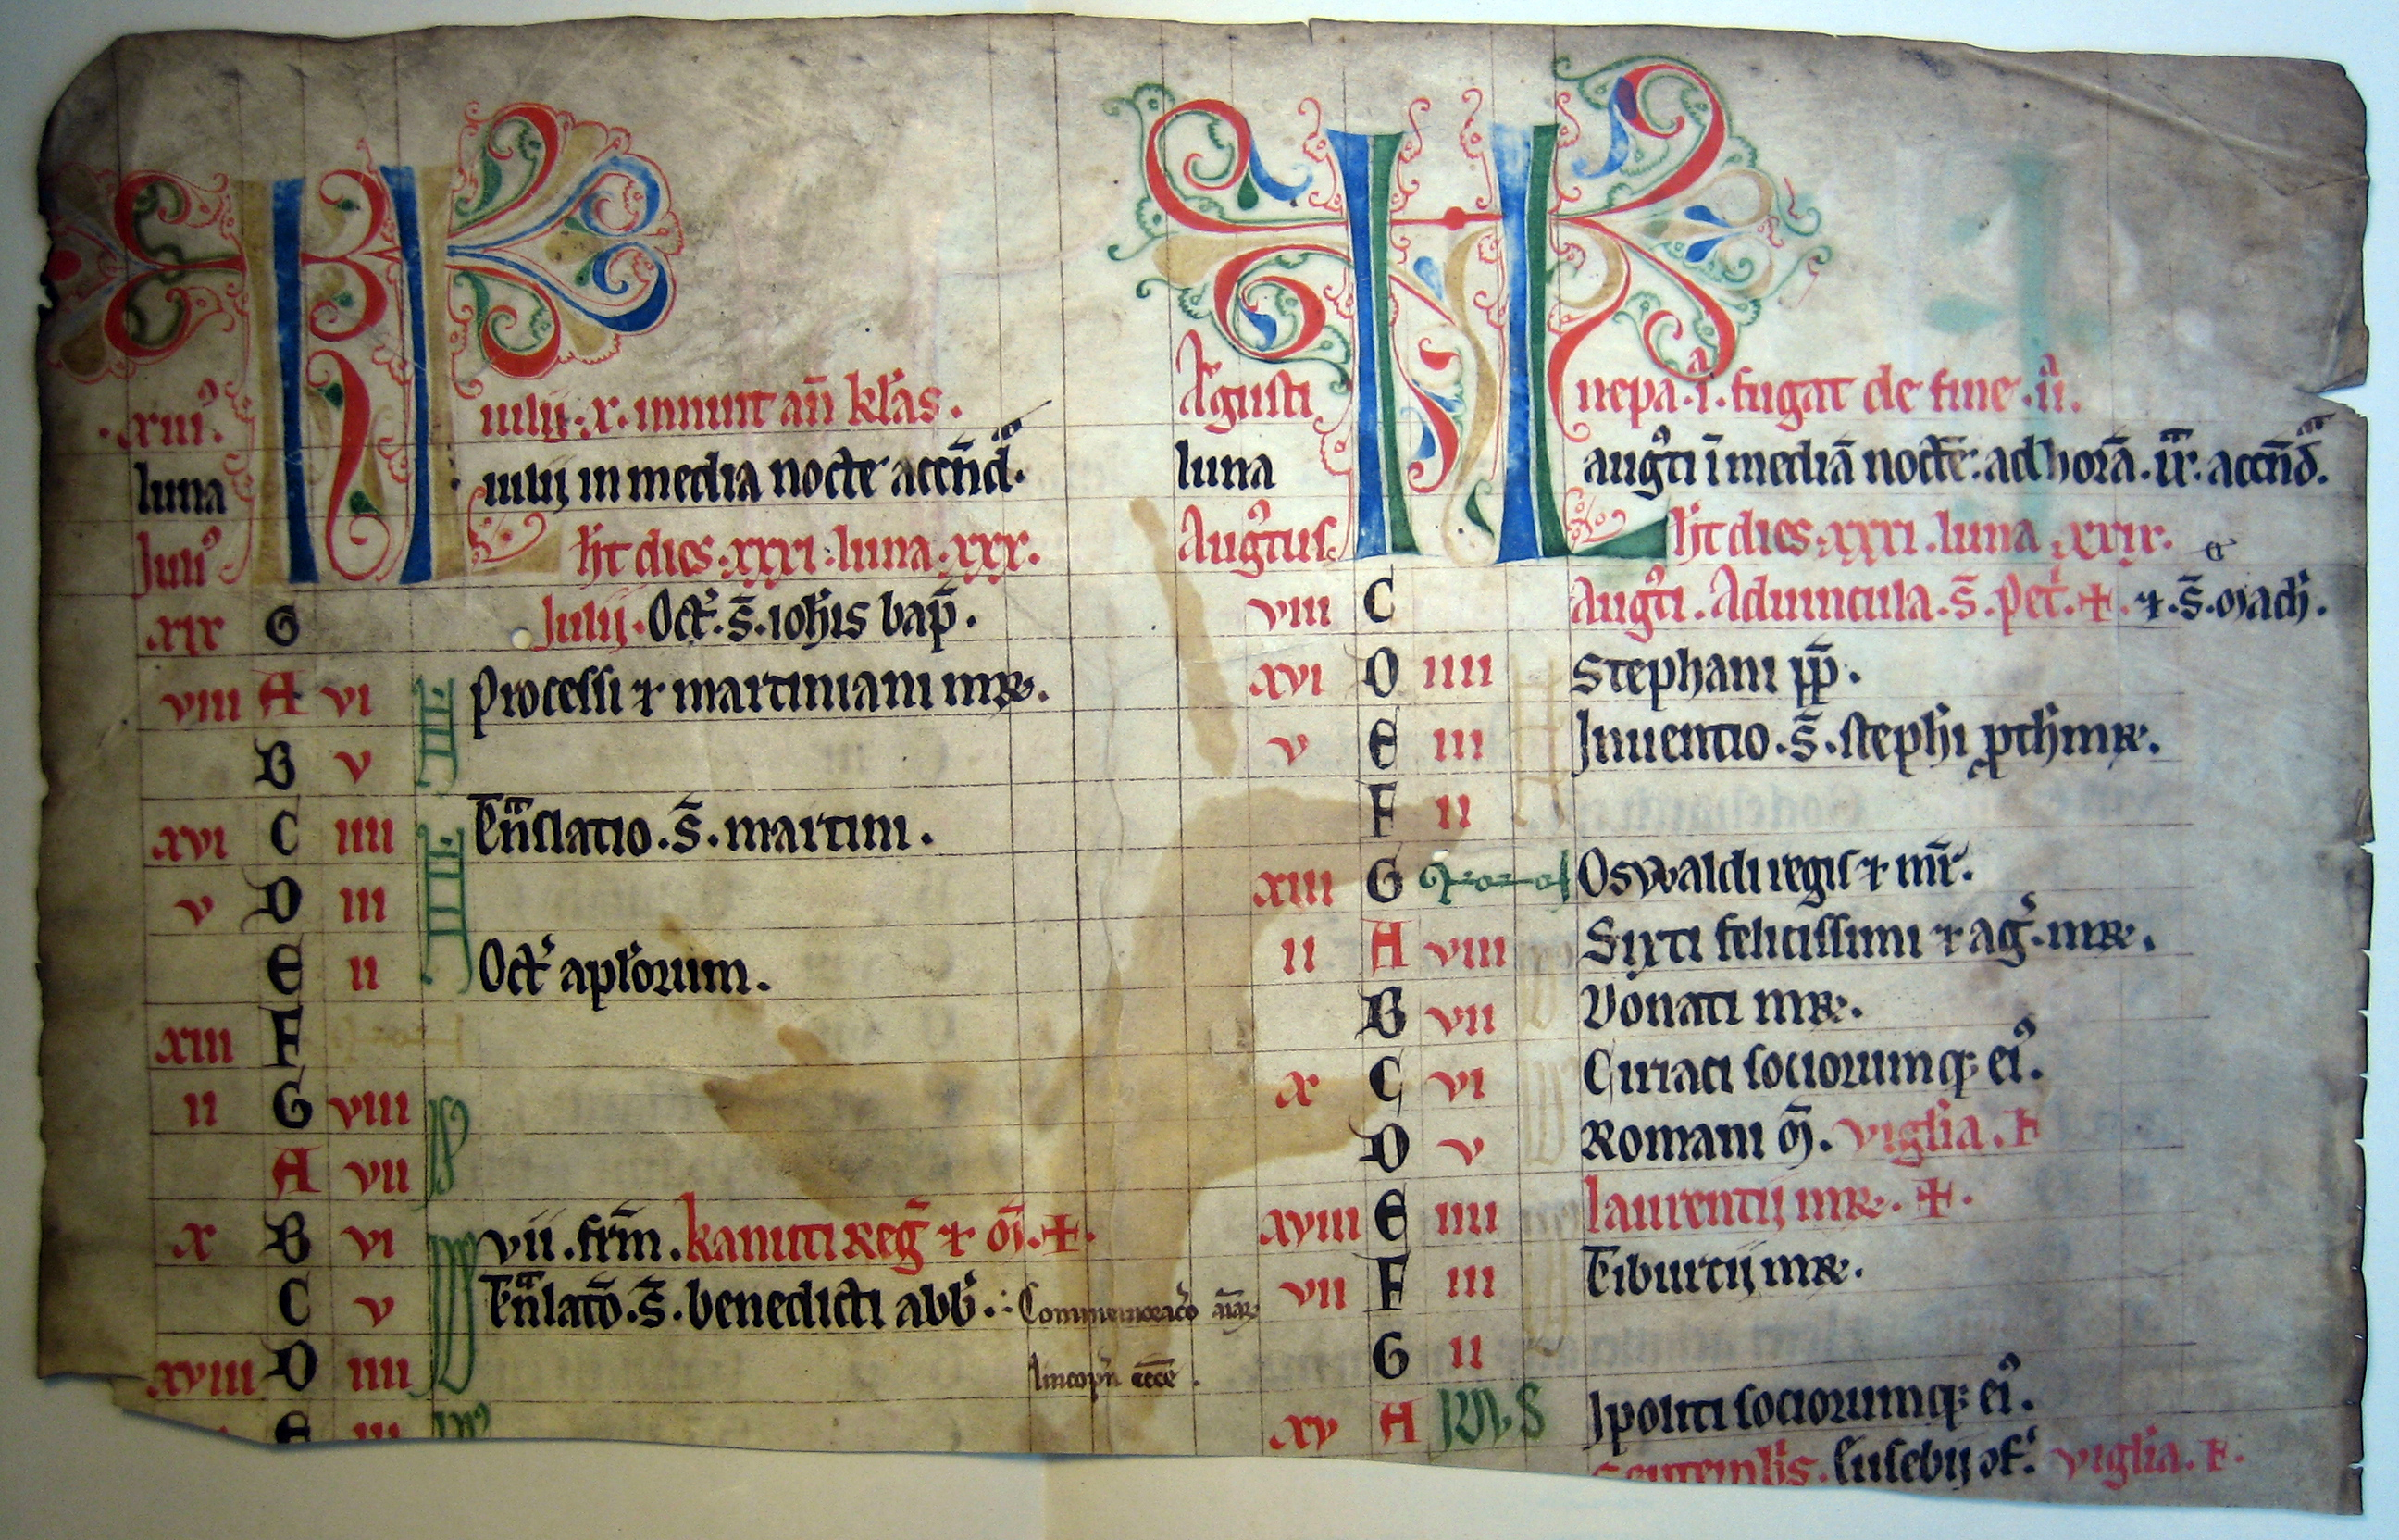 xiii.
iulij . x . innuit añ kl'as .
luna
iulij in media nocte accñd.
Julij
h't dies . xxxi . luna . xxx .
xix G Julij . Oct' . s̄ . ioh'is bap̄ .
viii A vi Processi ⁊ martiniani mr̄ .
B v
xvi C iiii Tñslatio . s̄ . martini .
v D iii
E ii Oct' ap'lorum .
xiii F
ii G viii
A vii
x B vi vii . fr̄m . kanuti reg̃ ⁊ m̄ . +.
C v Tñlatō . s̄ . benedicti abb' .
xviii D iiii
E iii
Agusti
KL
nepa . i . fugat de fine . ii .
luna
aug'ti ī mediā nocte . ad horā . ii . accñd .
Aug'tus
h't dies . xxxi . luna . xxix .
viii C Aug'ti . Aduincula . s̄ . Pet' . + . ⁊ . s̄ . mach' .
xvi D iiii Stephani pp̄ .
v E iii Inuentio . s̄ . steph'i p̱th'mr̄ .
F ii
xiii G Non Oswaldi regis ⁊ mr̄ .
ii A viii Sixti felicissimi ⁊ ag' . mr̄ .
B vii Donati mr̄ .
x C vi Ciriaci sociorumq; ei' .
D v Romani m̄ . viglīa . F
xviii E iiii laurentij mr̄ . + .
vii F iii Tiburtij mr̄ .
G ii
xv A IDVS Ipoliti sociorumq; ei' .
Septembīs . Eusebij ɔf . viglīa . F .